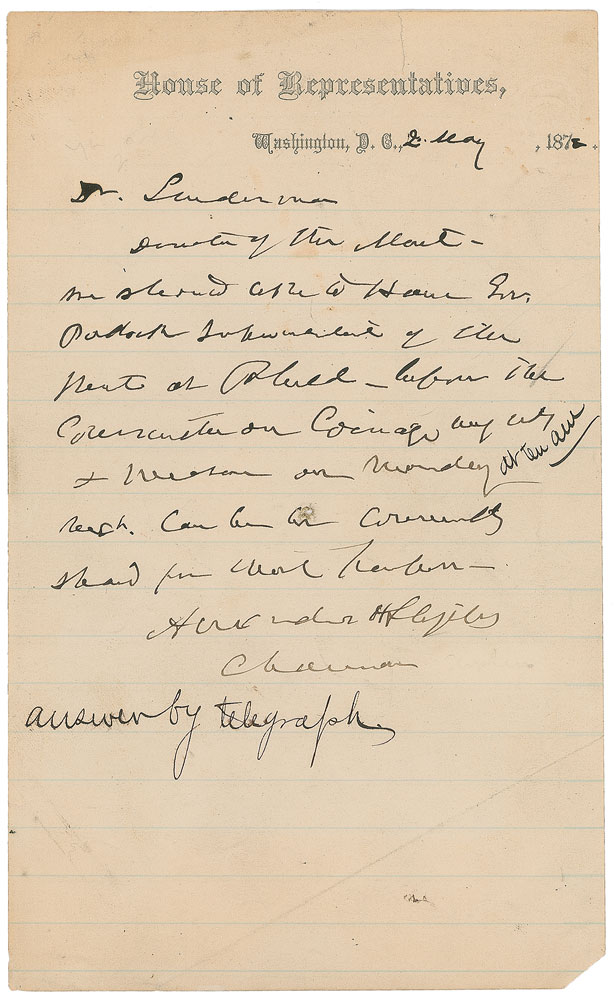 House of Representatives,
Washington, D. C., 2 May, 187
Dr. Linderman
Director of the Mint –
we should like to Have Gov.
Pollock Superintendent of the
Mint at Philad – before the
Committee on Coinage
& Measures on Monday at ten am
next. Can he be conveniently
spared for that purpose –
Alexander H Stephens
Chairman
answer by telegraph